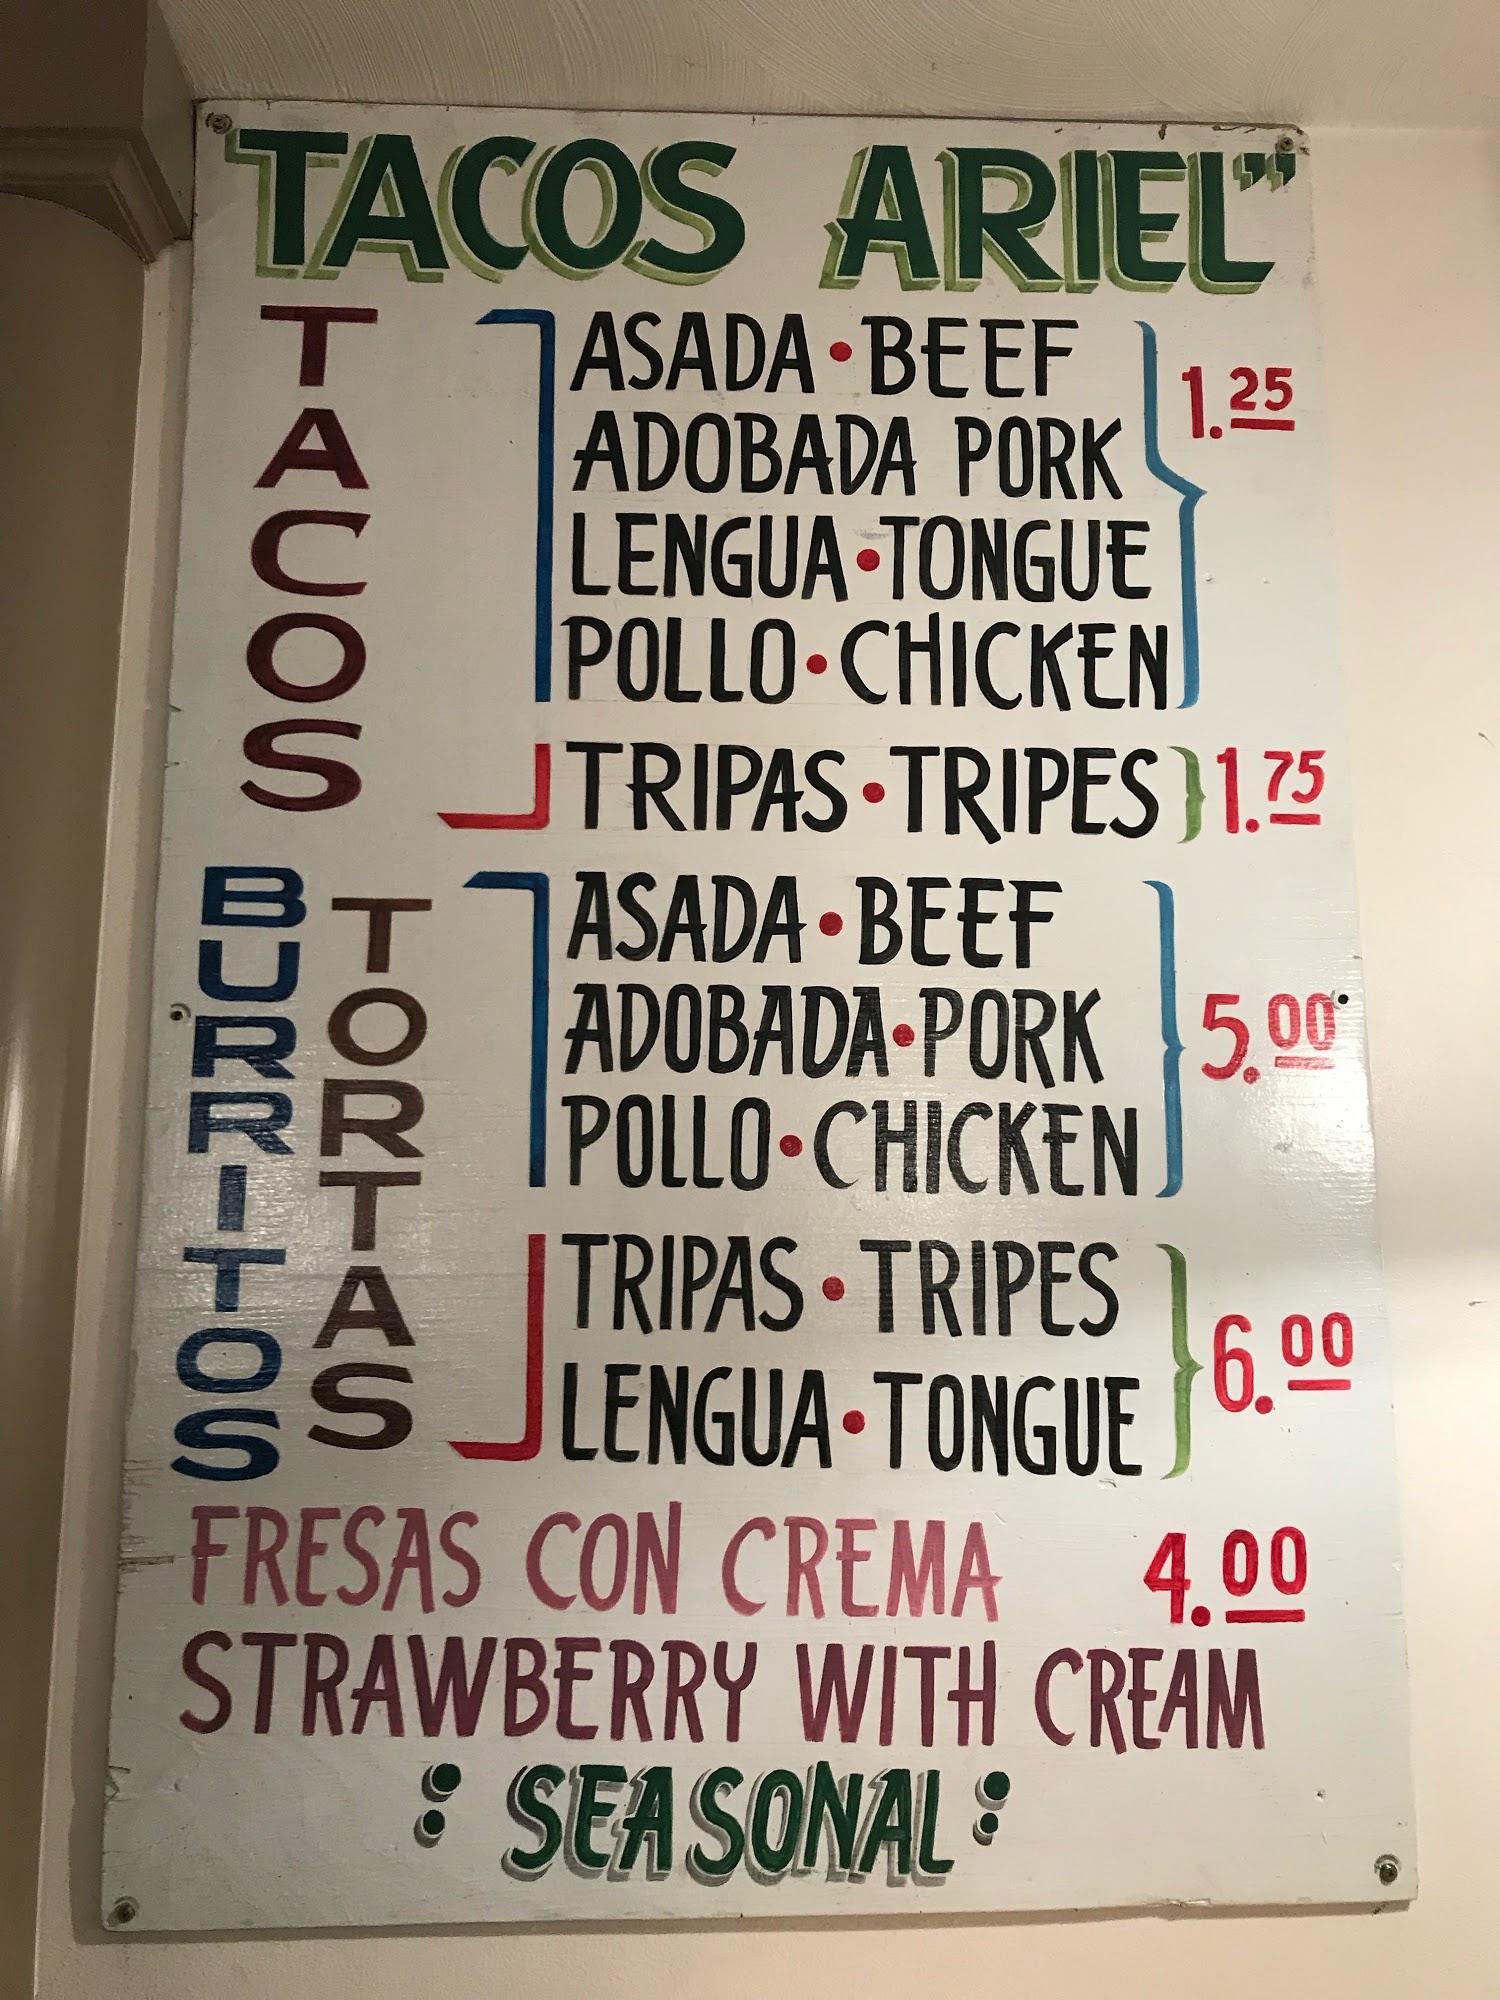 TACOS ARIEL"
TACOS
ASADA • BEEF
ADOBADA PORK
LENGUA • TONGUE
POLLO • CHICKEN
1.25
TRIPAS • TRIPES
1.75
BURRITOS
TORTAS
ASADA • BEEF
ADOBADA • PORK
POLLO • CHICKEN
5.00
TRIPAS • TRIPES
LENGUA • TONGUE
6.00
FRESAS CON CREMA 4.00
STRAWBERRY WITH CREAM
: SEASONAL :